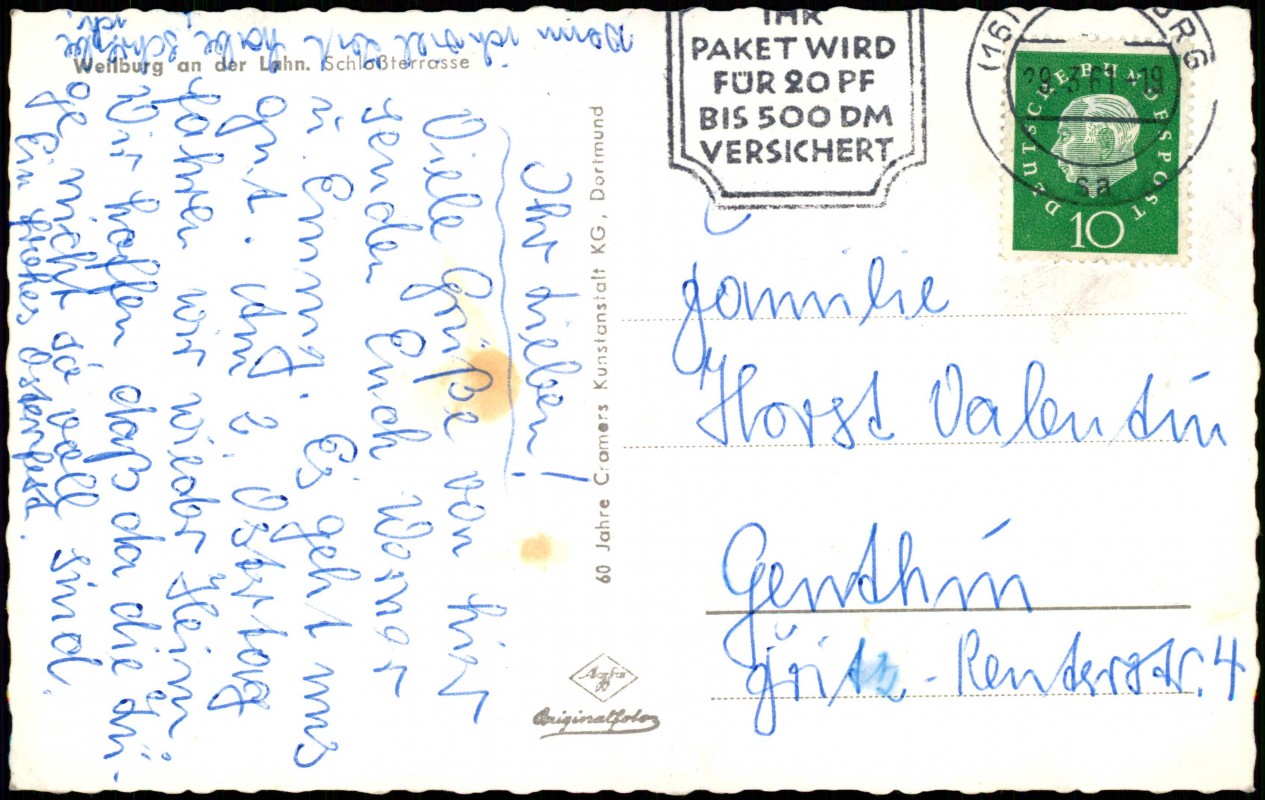 Weilburg an der Lahn. Schloßterrasse
Ihr Lieben!
Viele Grüße von hier
senden Euch Werner
u. Emmy. Es geht uns
gut. Am 2. Ostertag
fahren wir wieder Heim
Wir hoffen daß da die Zü-
ge nicht so voll sind.
Ein frohes Osterfest.
Wenn ich viel Zeit habe, schreibe
ich
60 Jahre Cramers Kunstanstalt KG, Dortmund
Agfa
Originalfoto
IHR
PAKET WIRD
FÜR 20 PF
BIS 500 DM
VERSICHERT
(16) BURG
29.3.61-19
sa
DEUTSCHE BUNDESPOST
10
Familie
Horst Valentin
Genthin
Fritz-Reuterstr. 4